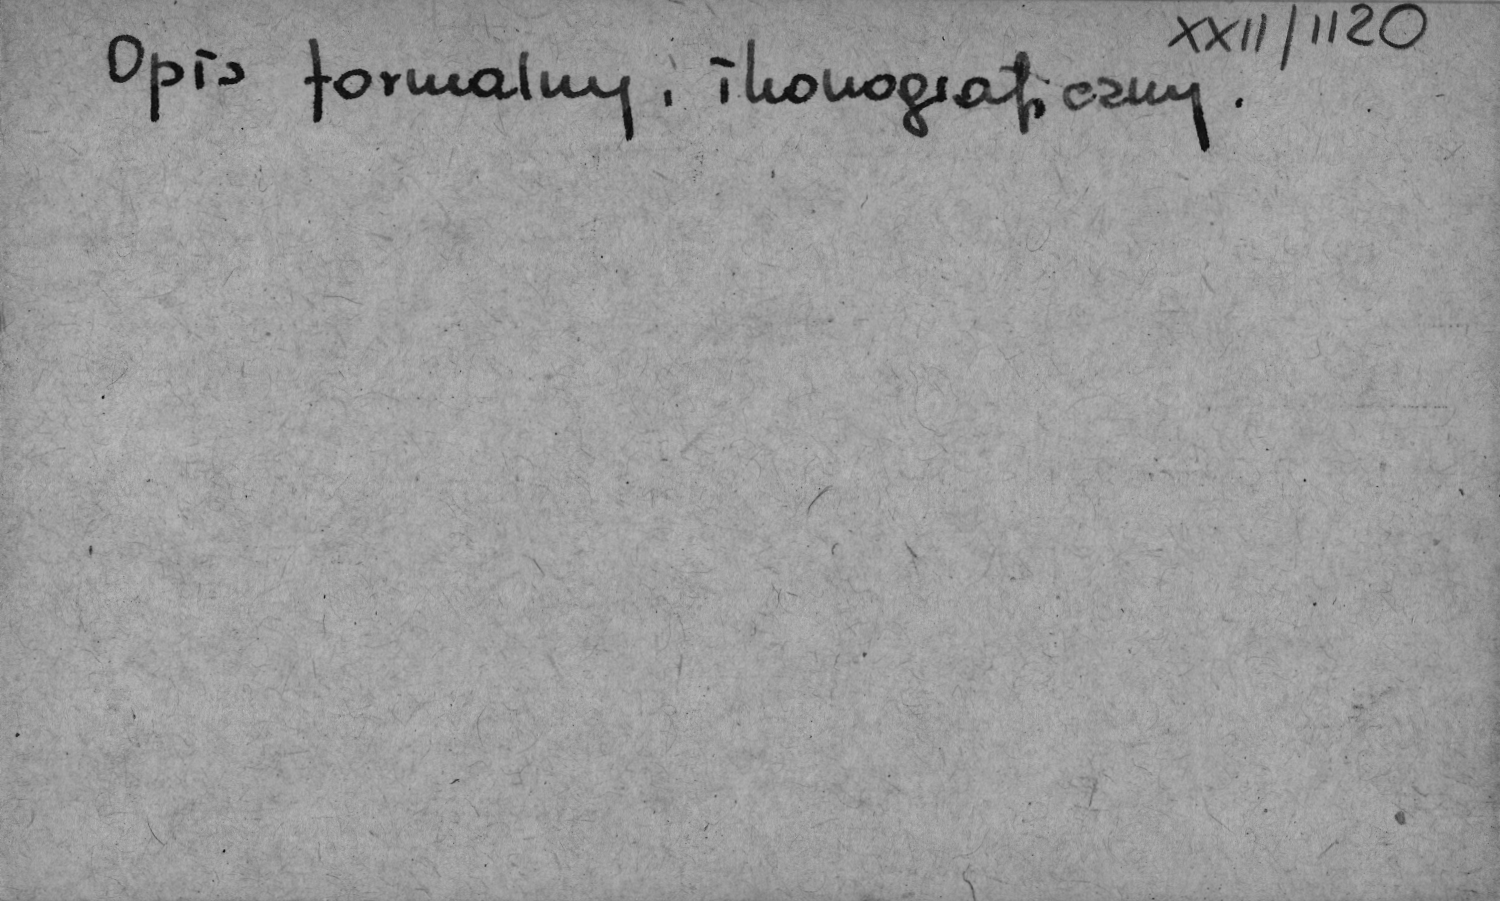 XXII/1120
Opis formalny i ikonograficzny.